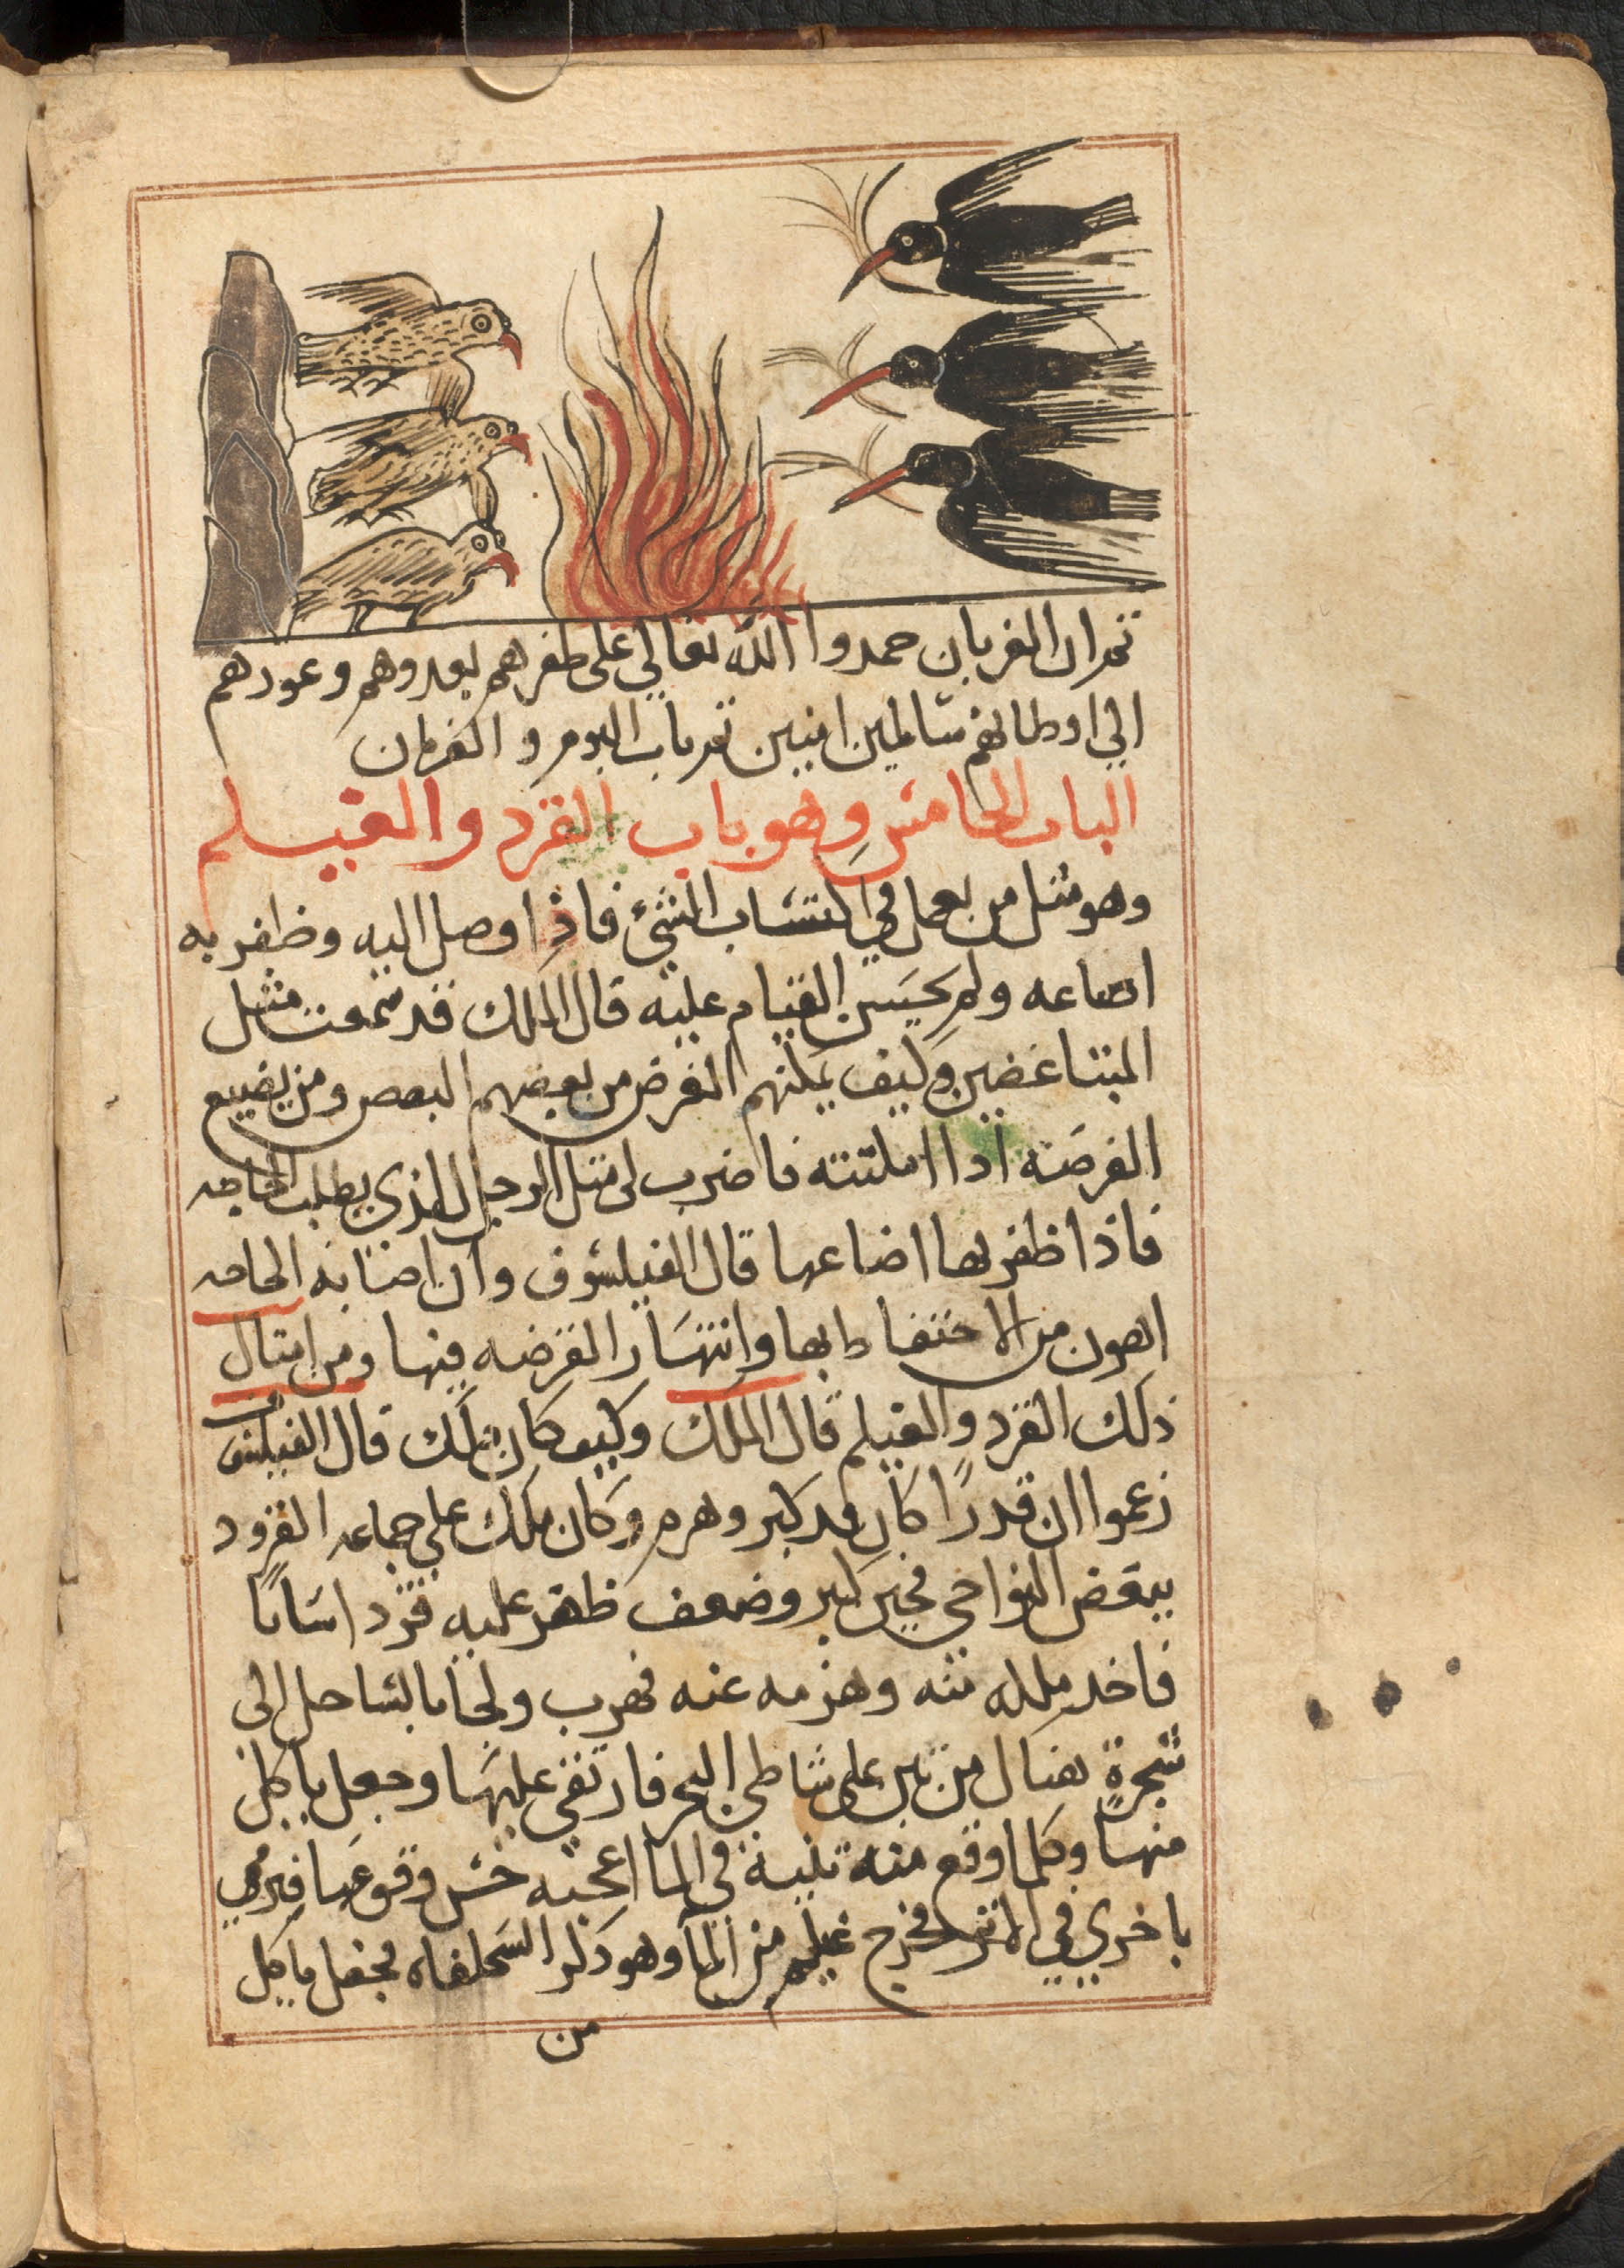 ثم ان الغربان حمدوا الله تعالي علي ظفرهم بعدوهم وعودهم
الي اوطانهم سالمين امنين تم باب البوم والغربان
الباب الخامس وهو باب القرد والغيلم
وهو مثل من يعمل في اكتساب الشئ فاذا وصل اليه وظفر به
اضاعه ولم يحسن القيام عليه قال الملك قد سمعت مثل
المتباغضين وكيف يمكنهم الفرض من بعضهم البعض ومن يضيع
الفرصه اذا امكنته فاضرب لي مثل الرجل الذي يطلب الحاجه
فاذا ظفر بها اضاعها قال الفيلسوف وان اصابه الحاجه
اهون من الاحتفاظ بها وانتهار الفرصه فيها ومن امثال
ذلك القرد والغيلم قال الملك وكيف كان ذلك قال الفيلسوف
زعموا ان قدرًا كان قد كبر وهرم وكان ملك علي جماعه القرود
ببعض النواحي فحين كبر وضعف ظهر عليه قرد اسابا
فاخد ملكه منه وهزمه عنه فهرب ولجا بالساحل الي
شجرةٍ هناك من تين علي شاطي البحر فارتقي عليها وجعل ياكل
منها وكلما وقع منه تينة في الما اعجبه حس وقوعها فيرمي
باخري في الاثر فخرج غيلم من المآ وهو ذكر السحلفاه فجعل ياكل
من